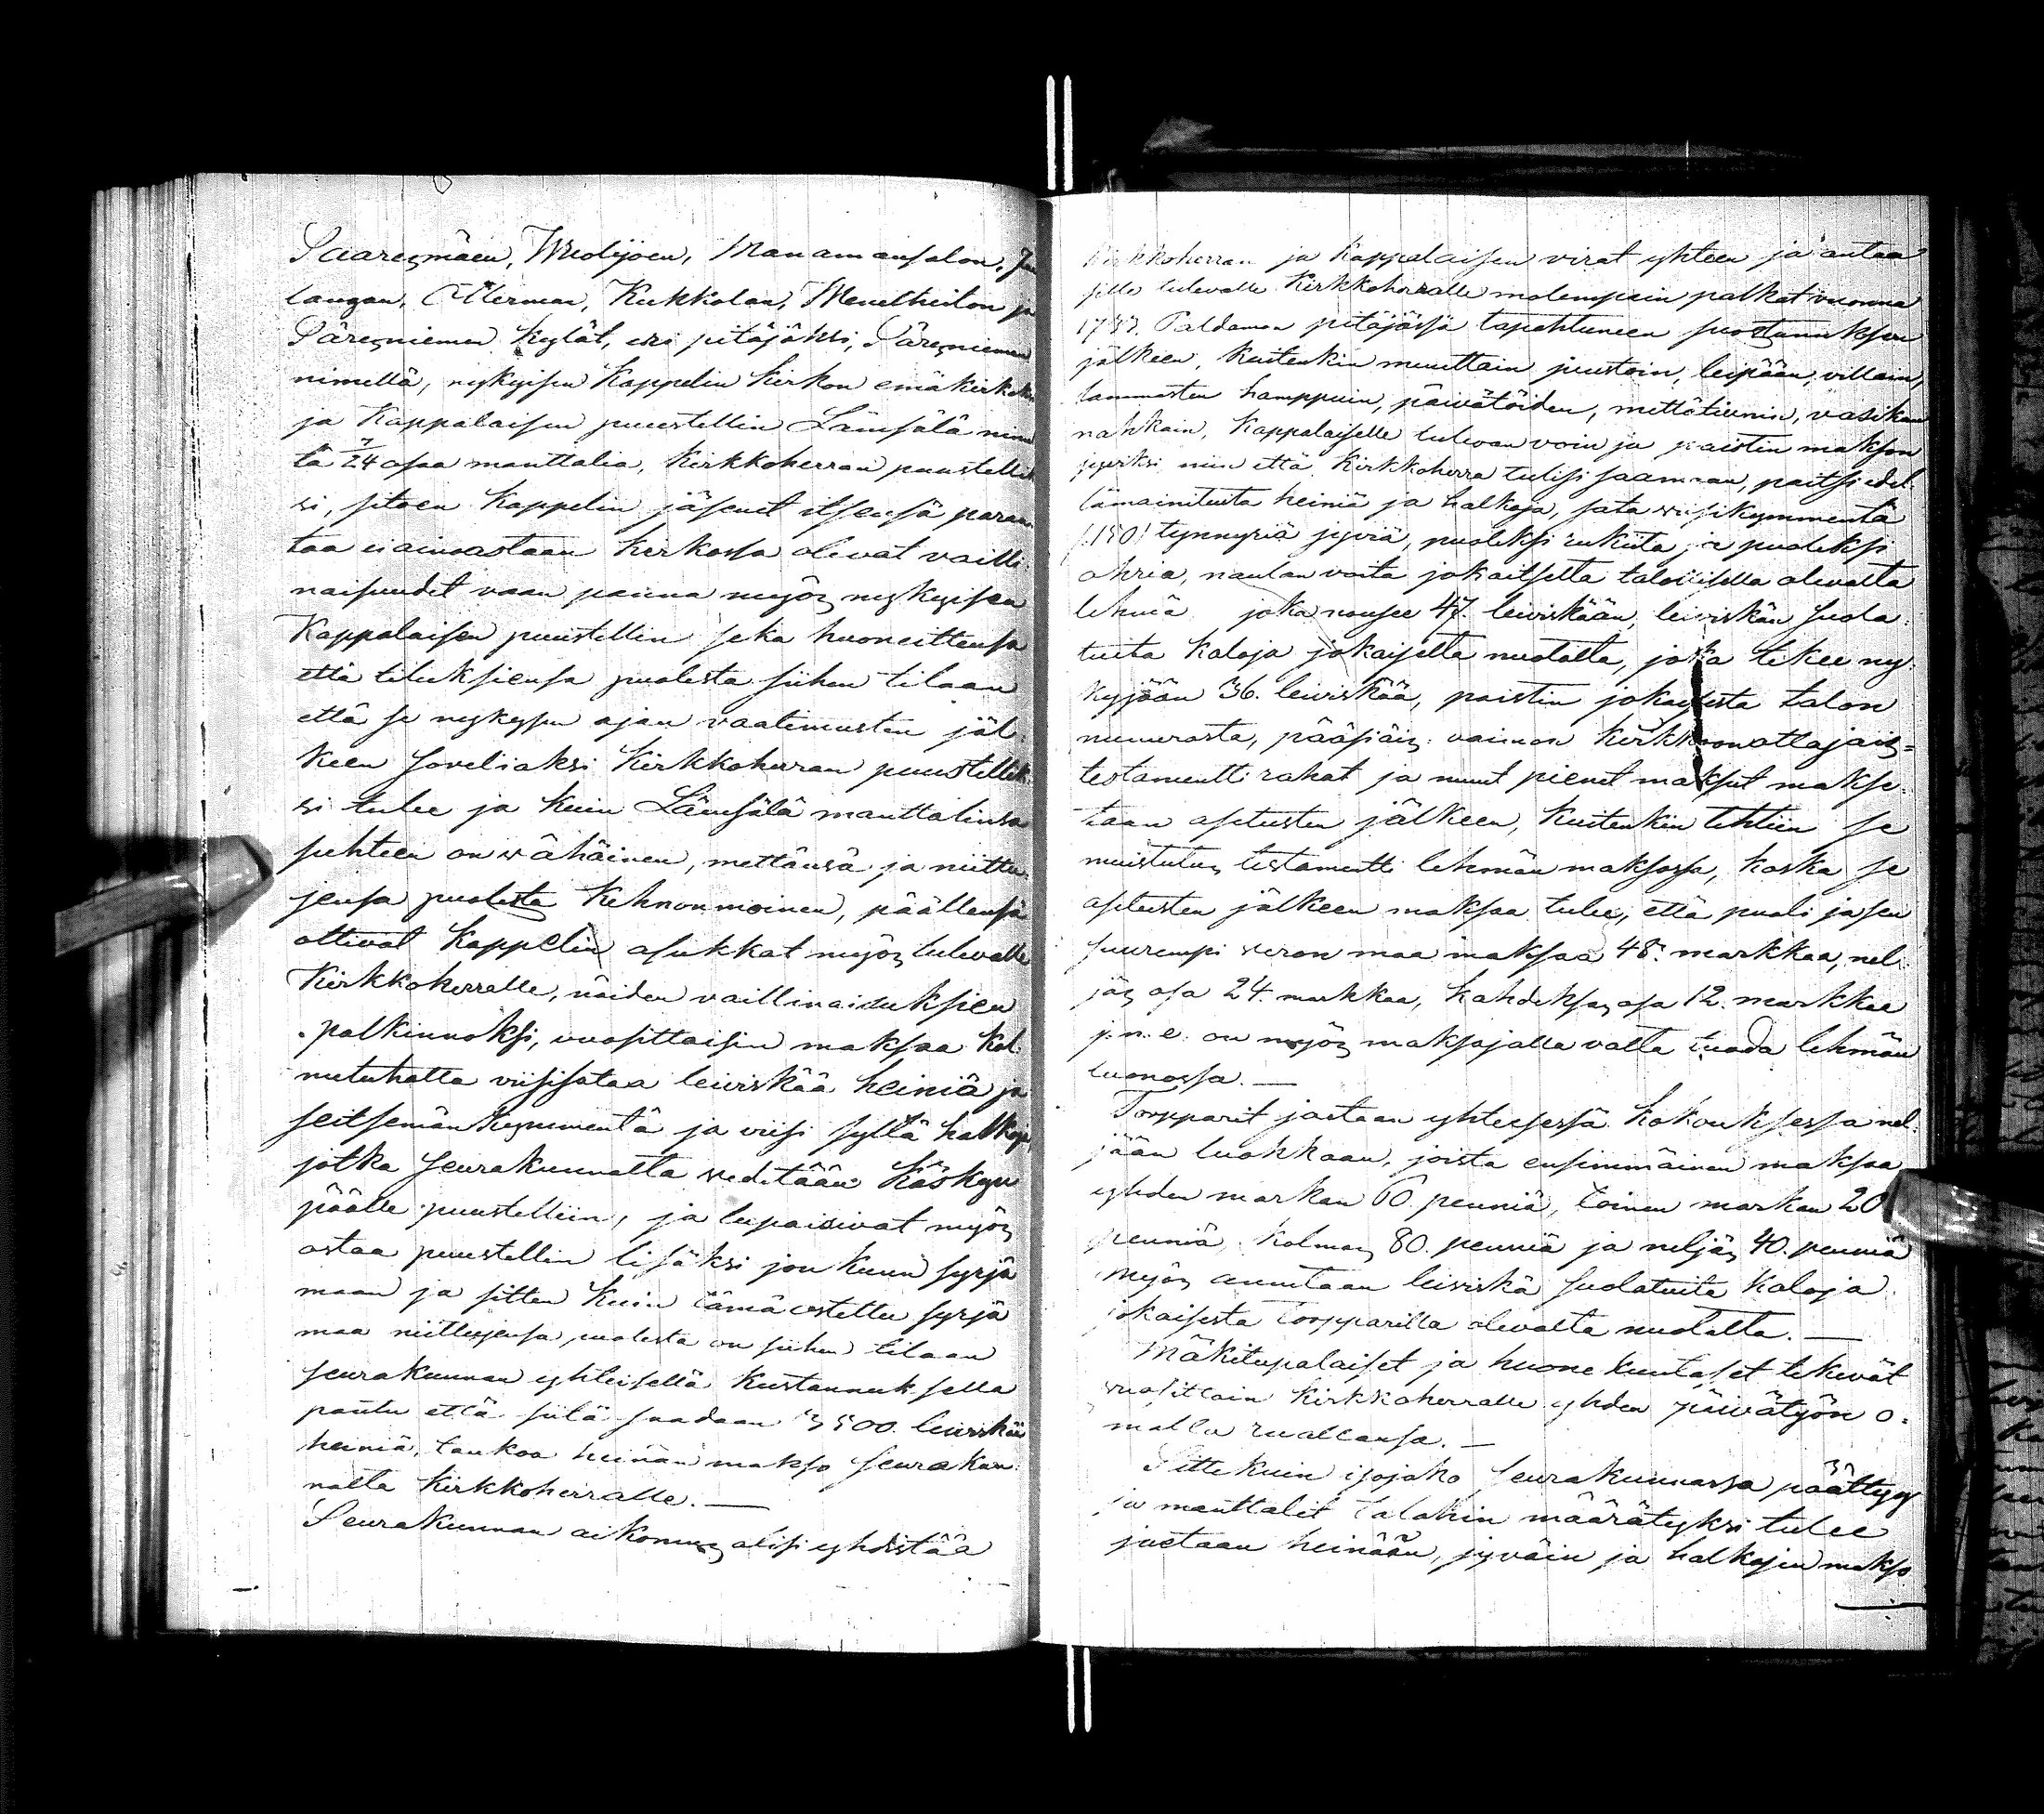 Saaresmäen, Wuolijoen, Manamansalon, Ju
langan, Allerman, Kukkolan, Weneltheiton ja
Säresniemen kylät, eri pitäjäksi, Säresniemen
nimellä, nykyisen Kappelin kirkon emäkirkoksi
ja Kappalaisen puustellin Lämsälä nimi
tä 7/24 osaa manttalia, kirkkoherran puustellik
si, sitoen Kappelin jäsenet itsensä paran
taa ei ainoastaan kirkossa olevat vailli
naisuudet vaan panna myös nykyisen
Kappalaisen puustellin sekä huoneittensa
että tiluksiensa puolesta siihen tilaan
että se nykysen ajan vaatimusten jäl
keen soveliaksi Kirkkoherran puustellik
si tulee ja kuin Lämsälä manttalinsa
suhteen on wähäinen, mettänsä ja niittu
jensa puolesta kehnonmoinen, päällensä
ottivat Kappelin asukkat myös tulevalle
Kirkkoherralle, näiden vaillinaisuksien
palkinnoksi, vuosittaisin maksaa kol
metuhatta viisisataa leiviskää heiniä ja
seitsemänkymmentä ja viisi syltä halkoja,
jotka seurakunnalta vedetään käskyn
päälle puustelliin, ja lupaisivat myös
ostaa puustellin lisäksi jonkuun syrjä
maan ja sitten kuin tämä ostettu syrjä
maa niittujensa puolesta on siihen tilaan
seurakunnan yhteisellä kustannuksella
pantu että siitä saadaan 3500. leiviskää
heiniä, laukoa heinän makso seurakun
nalta Kirkkoherralle. —
Seurakunnan aikomus olisi yhdistää
Kirkkoherran ja Kappalaisen virat yhteen ja antaa
sille tulevalle Kirkkoherralle molempain palkat vuonna
Paldamon pitäjässä tapahtuneen suostunuksen
jälkeen, kuitenkin muuttain juustoin, leipään, villain,
lammasten hamppuin, päivätöiden, mettätiunin, vasikan
nahkain, Kappalaiselle tulevan voin ja paistin makson
jyviksi niin että Kirkkoherra tulisi saamaan, paitsi edel
lämainitusta heiniä ja halkoja, sata viisikymmentä
(:150:) tynnyriä jyviä, puoleksi rukiita ja puoleksi
ohria, naulan voita jokaitselta talollisella olevalta
lehmä joka nousee 47. leiviskään, leiviskän suola
tuita kaloja jokaiselta nuotalta, joka tekee ny
kyjään 36. leiviskää, paistin jokaisesta talon
numerosta, pääsiäis: vaimon kirkkoonottajais=
testamentti rahat ja muut pienet maksut makse
taan asetusten jälkeen, kuitenkin tehtiin se
muistutus testamentti lehmän maksossa, koska se
asetusten jälkeen maksaa tulee, että puoli ja sen
suurempi veron maa maksaa 48. markkaa, nel
jäs osa 24. markkaa, kahdeksas osa 12. markkaa
j. n. e. on myös maksajalla valta tuoda lehmän
luonossa. —
Torpparit jaetaan yhteisessä kokouksessa nel
jään luokkaan, joista ensimmäinen maksaa
yhden markan 60. penniä, toinen markan 20
penniä, kolmas 80. penniä ja neljäs 40. penniä
myös annetaan leiviskä suolatuita kaloja
jokaisesta torpparilla olevalta nuotalta. —
Mäkitupalaiset ja huonekuntaset tekevät
vuosittain Kirkkoherralle yhden päivätyön o=
malla ruallansa. —
Sitte kuin isojako seurakunnassa päättyy
ja manttalit taloihin määrätyksi tulee
jaetaan heinään, jyväin ja halkojen makso